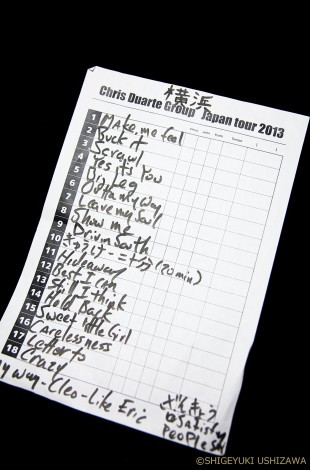 横浜
Chris Duarte Group Japan tour 2013
1 Make me feel
2 Buck it
3 Scrawl
4 Yes it's You
5 Big Leg
6 Outta my way
7 Leave my Soul
8 Show me
9 Drivin South
10 (20 min)
11 Hideaway
12 Best I Can
13 Still I think
14 Hold Back
15 Sweet little Girl
16 Carelessness
17 Letter to
18 Crazy
My way - Cleo - Like Eric
satisfy
People
©SHIGEYUKI USHIZAWA